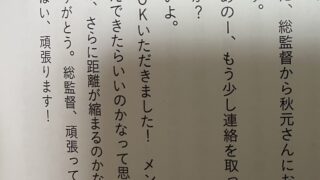 、総監督から秋元さんにお
す。
あのー、もう少し連絡を取っ
か？
すよ。
OKいただきました！　メン
できたらいいのかなって思
、さらに距離が縮まるのかな
がとう。総監督、頑張って
い、頑張ります！